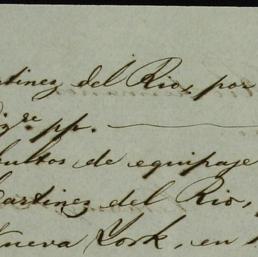 rtinez del Rio, por
pp.
bultos de equipaje
Martinez del Rio,
Nueva York, en